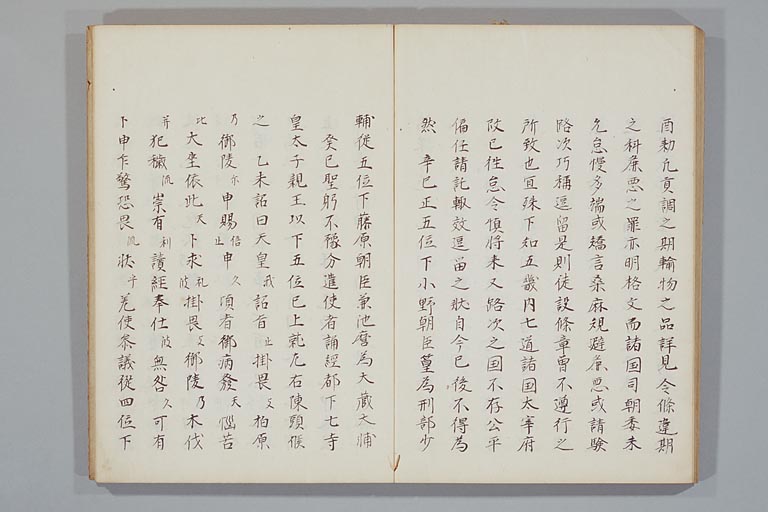 酉勅凡貢調之期輸物之品詳見令條違期
之科麁悪之罪亦明格文而諸国司朝委未
允怠慢多端或矯言桑麻規避麁悪或請験
路次巧稱逗留是則徒設條章曽不遵行之
所致也宜殊下知五畿内七道諸国太宰府
改已往怠令慎将来又路次之国不存公平
偏任請託輙效逗留之状自今已後不得為
然　辛巳正五位下小野朝臣篁為刑部少
輔従五位下藤原朝臣兼池麿為大蔵大輔
癸巳聖躬不豫分遣使者誦経都下七寺
皇太子親王以下五位已上執兀右陳頭候
之　乙未詔曰天皇我詔旨止掛畏支柏原
乃御陵尓申賜倍止申久頃者御病發天悩苦
比大坐依此天卜求礼波掛畏支御陵乃木伐
并犯穢流祟有利讀経奉仕波無咎久可有
卜申乍驚恐畏流状乎差使参議従四位下